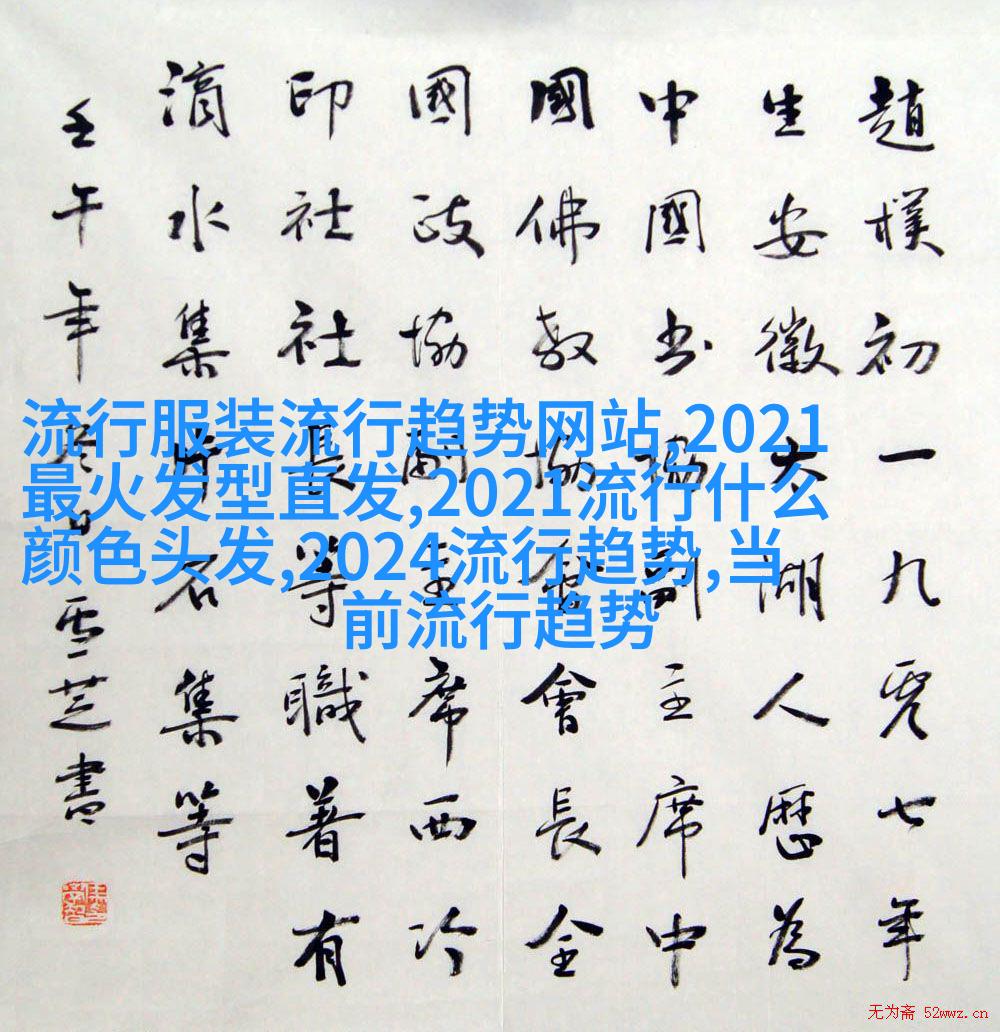 趙樸初一九零七年
生安徽太湖人歷為
中國书協副主席中
國佛教協會會長全
國政協副主席西冷
印社社長等職著有
滴水集片石集等
壬午年冬日雪芝書
流行服装流行趋势网站,2021
最火发型直发,2021流行什么
颜色头发,2024流行趋势,当
前流行趋势
无为斋 52wwz.cn